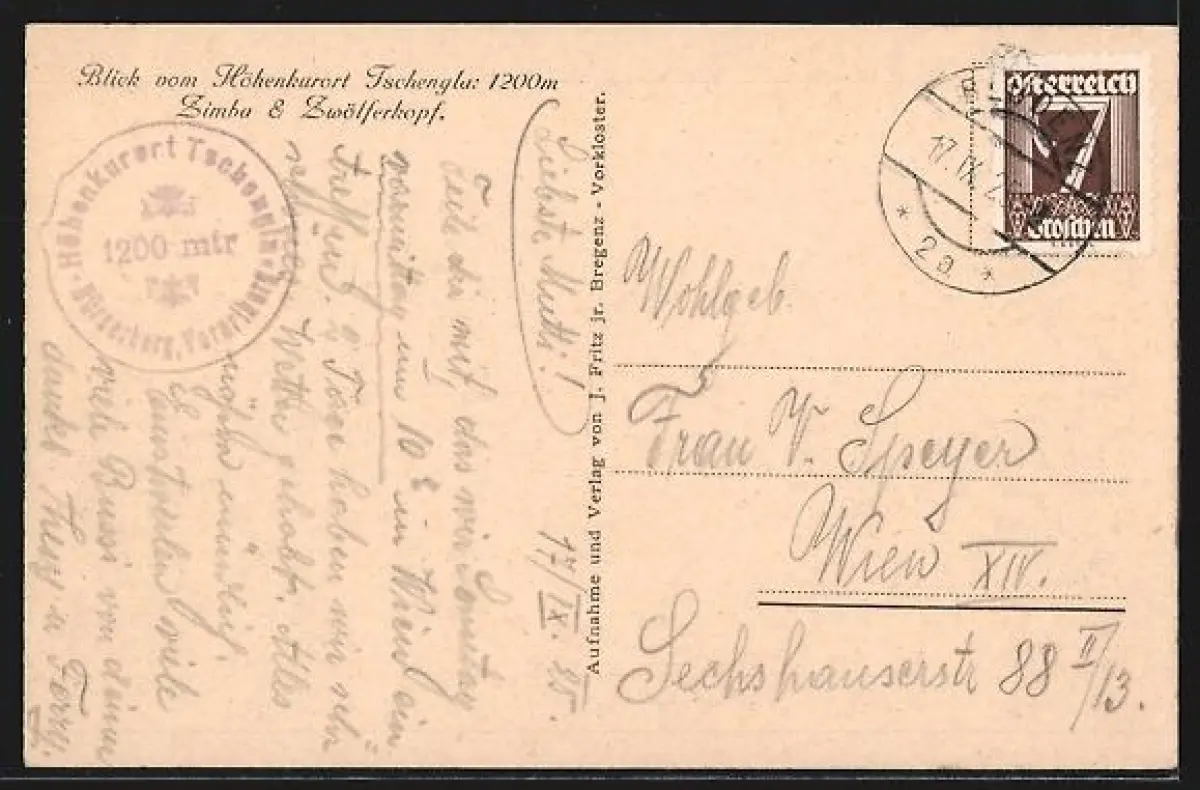 Blick vom Höhenkurort Tschengla: 1200m
Zimba & Zwölferkopf.
Höhenkurort Tschengla
1200 mtr
Bürserberg, Vorarlberg
17/IX. 25.
Liebste Mutti!
Teile dir mit, das wir Sonntag
vormittag um 10 in Wien ein
treffen. 9 Töre haben wir sehr
schönes Wetter gehabt. Alles
nähere mündlich.
viele
viele Bussi von deiner
Aufnahme und Verlag von J. Fritz jr. Bregenz - Vorkloster.
Österreich
7
Groschen
17.IX.25
* 2a *
Wohlgeb.
Frau V. Speyer
Wien XIV.
Sechshauserstr 88 II/13.